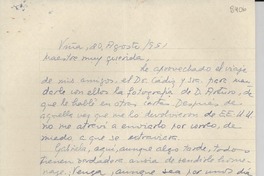 Viña, 20 Agosto/951
Maestra muy querida,
he aprovechado el viaje
de mis amigos, el Dr. Cádiz y Sra. para man-
darle con ellos la fotografía de D. Arturo, de
que le hablé en otras cartas. Después de
aquella vez que me la devolvieron de EE. UU.
no me atreví a enviarla por correo, de
miedo a que se extraviara.
Gabriela, aquí, aunque algo tarde, todos
tienen verdadera ansia de rendirle home-
naje. Venga, aunque sea por unos días